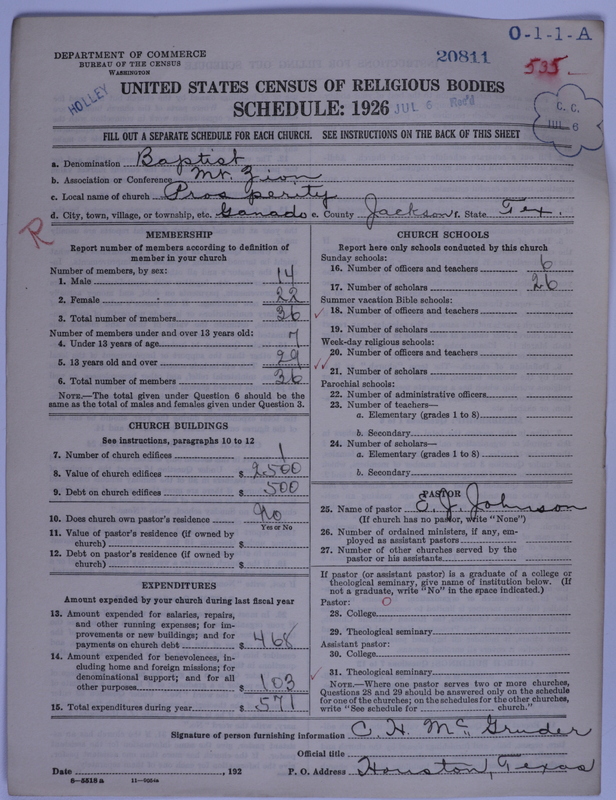 O-1-1-A
DEPARTMENT OF COMMERCE
BUREAU OF THE CENSUS
WASHINGTON
20811
535
HOLLEY
UNITED STATES CENSUS OF RELIGIOUS BODIES
SCHEDULE: 1926
JUL 6 Rec'd
C. C.
JUL 6
FILL OUT A SEPARATE SCHEDULE FOR EACH CHURCH. SEE INSTRUCTIONS ON THE BACK OF THIS SHEET
a. Denomination Baptist
b. Association or Conference Mt. Zion
c. Local name of church Prosperity
d. City, town, village, or township, etc. Ganado e. County Jackson f. State Tex.
R
MEMBERSHIP
Report number of members according to definition of
member in your church
Number of members, by sex:
1. Male 14
2. Female 22
3. Total number of members 36
Number of members under and over 13 years old:
4. Under 13 years of age 7
5. 13 years old and over 29
6. Total number of members 36
NOTE.—The total given under Question 6 should be the
same as the total of males and females given under Question 3.
CHURCH BUILDINGS
See instructions, paragraphs 10 to 12
7. Number of church edifices 1
8. Value of church edifices $ 2500
9. Debt on church edifices $ 500
10. Does church own pastor's residence No
Yes or No
11. Value of pastor's residence (if owned by
church) $
12. Debt on pastor's residence (if owned by
church) $
EXPENDITURES
Amount expended by your church during last fiscal year
13. Amount expended for salaries, repairs,
and other running expenses; for im-
provements or new buildings; and for
payments on church debt $ 468
14. Amount expended for benevolences, in-
cluding home and foreign missions; for
denominational support; and for all
other purposes $ 103
15. Total expenditures during year $ 571
CHURCH SCHOOLS
Report here only schools conducted by this church
Sunday schools:
16. Number of officers and teachers 6
17. Number of scholars 26
Summer vacation Bible schools:
18. Number of officers and teachers
19. Number of scholars
Week-day religious schools:
20. Number of officers and teachers
21. Number of scholars
Parochial schools:
22. Number of administrative officers
23. Number of teachers—
a. Elementary (grades 1 to 8)
b. Secondary
24. Number of scholars—
a. Elementary (grades 1 to 8)
b. Secondary
PASTOR
25. Name of pastor E. J. Johnson
(If church has no pastor, write "None")
26. Number of ordained ministers, if any, em-
ployed as assistant pastors
27. Number of other churches served by the
pastor or his assistants
If pastor (or assistant pastor) is a graduate of a college or
theological seminary, give name of institution below. (If
not a graduate, write "No" in the space indicated.)
Pastor: O
28. College
29. Theological seminary
Assistant pastor:
30. College
31. Theological seminary
NOTE.—Where one pastor serves two or more churches,
Questions 28 and 29 should be answered only on the schedule
for one of the churches; on the schedules for the other churches,
write "See schedule for church."
Signature of person furnishing information C. H. McGruder
Official title
Date , 192 P. O. Address Houston, Texas
8-5518a